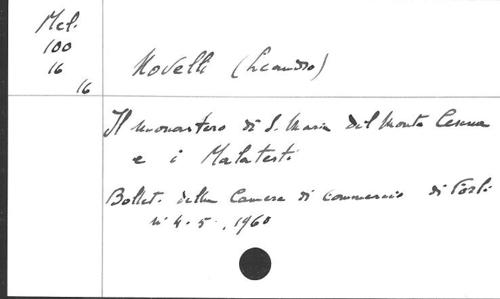 Mel.
100
16
16
Novelli (Leandro)
Il monastero di S. Maria del Monte Cesena
e i Malatesti
Bollet. della Camera di Commercio di Forlì
n° 4-5, 1960